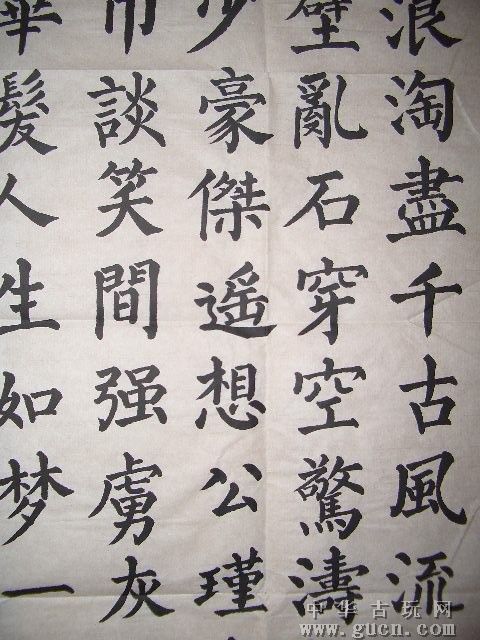 浪淘盡千古風流
壁亂石穿空驚濤
少豪傑遥想公瑾
巾談笑間强虜灰
華髮人生如梦一
中华古玩网
www.gucn.com